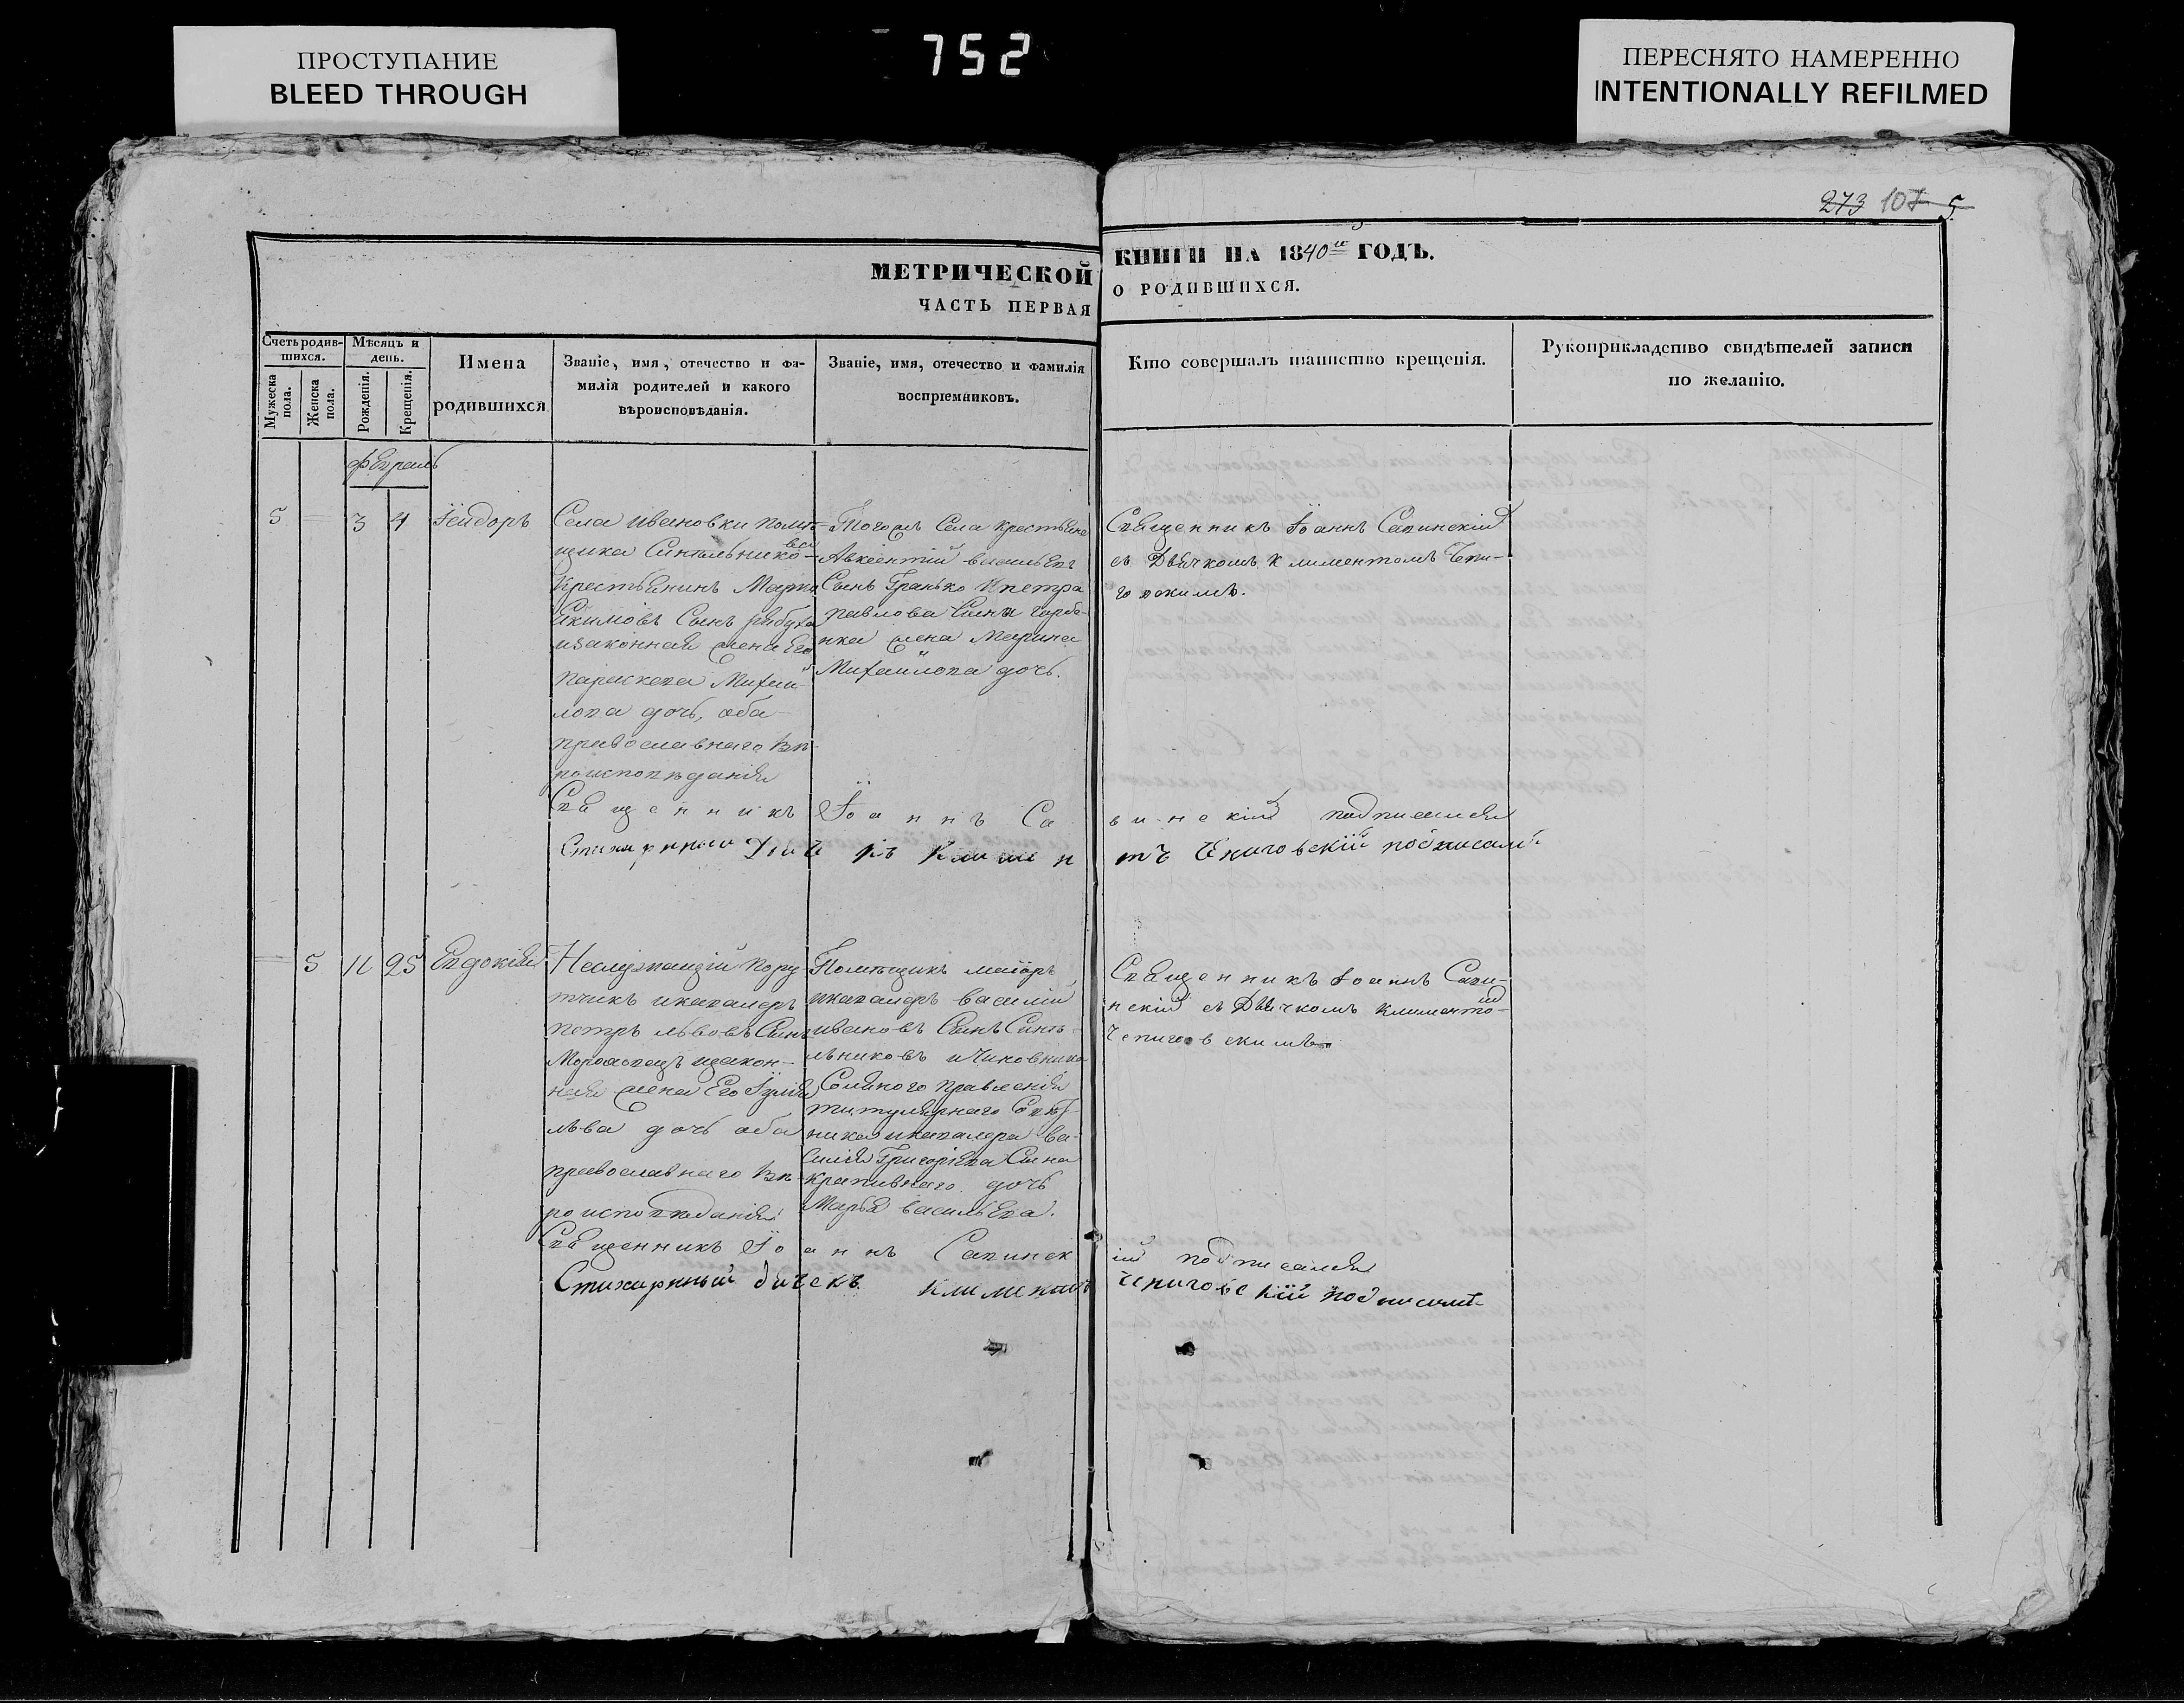 ПРОСТУПАНИЕ
BLEED THROUGH
752
ПЕРЕСНЯТО НАМЕРЕННО
INTENTIONALLY REFILMED
273 107 5
МЕТРИЧЕСКОЙ
ЧАСТЬ ПЕРВАЯ
КНИГИ НА 1840 ГОДЪ.
О РОДИВШИХСЯ.
Счетъ родив-
шихся.
Мужеска
пола.
Женска
пола.
Мѣсяцъ и
день.
Рожденія.
Крещенія.
Имена
родившихся
Званіе, имя, отечество и фа-
милія родителей и какого
вѣроисповѣданія.
Званіе, имя, отечество и фамилія
воспріемниковъ.
Кто совершалъ таинство крещенія.
Рукоприкладство свидѣтелей записи
по желанію.
февраль
5
3
4
Їсидоръ
Села ивановки помѣ-
щика Синельникова
Крестьянинъ Марко
Екимовъ Сынъ рябуха
изаконная жена Его
параскева Михаи-
лова дочь, оба
православнаго вѣ-
роисповѣданія
Тогожъ Села крестьяне
Авксентій васильевъ
Сынъ Гранько Ипетра
павлова Сына горба-
нка жена Марина
Михаилова дочь.
Священникъ Іоаннъ Савинскій
съ Дьячкомъ Климентомъ Чепи-
говскимъ.
Священникъ Іоаннъ Савинскій подписался
Стихарный Дьячекъ Климентъ Чепиговскій подписалъ
5
11
25
Евдокія
Неслужащій пору
тчикъ икавалеръ
петръ львовъ Сынъ
изакон-
ная жена Его Іулія
льва дочь оба
православнаго вѣ-
роисповѣданія
Помѣщикъ маіоръ
икавалеръ василій
ивановъ Сынъ Синѣ-
льниковъ ичиновника
Солянаго правленія
титулярнаго Совѣт-
ника икавалера Ва-
силія Григоріева Сына
Крапивнаго дочь
Марья васильева.
Священникъ Іоаннъ Сави-
нскій съ Дьячкомъ Климентомъ
Чепиговскимъ
Священникъ Іоаннъ Савинскій подписался
Стихарный дьячекъ Климентъ Чепиговскій подписалъ